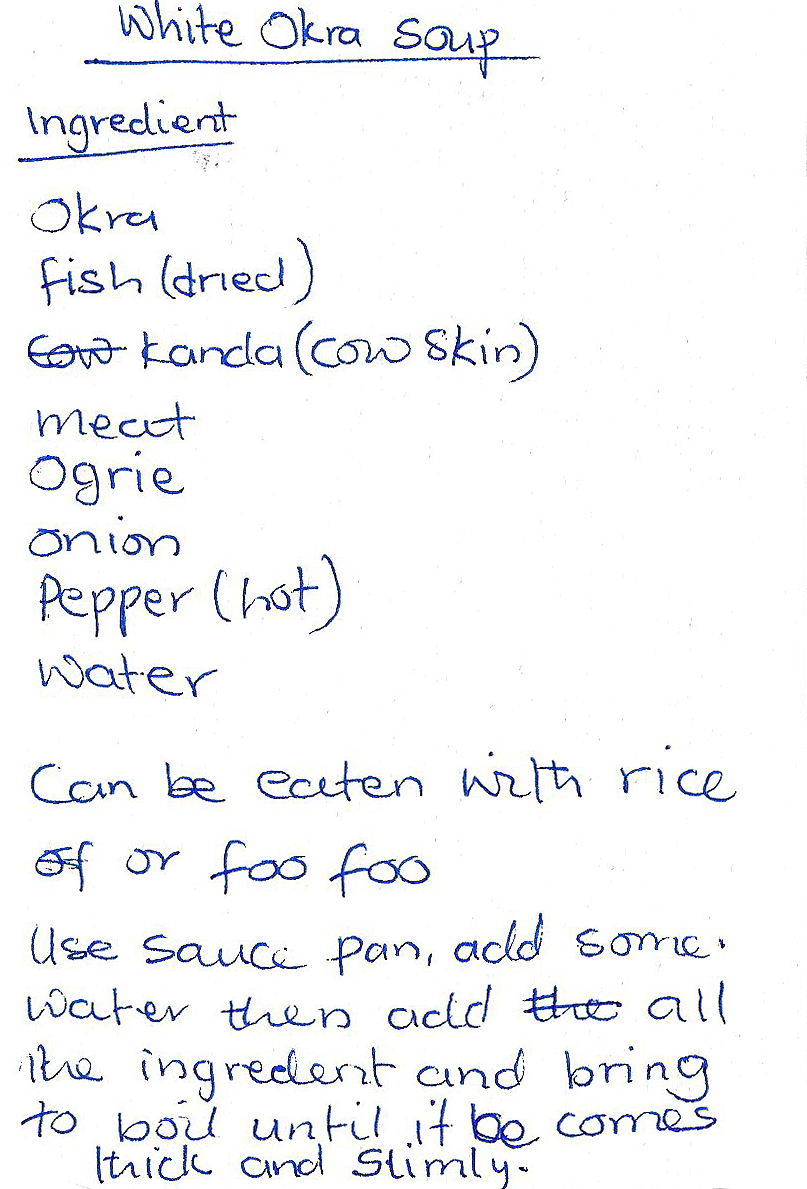 White Okra Soup
Ingredient
Okra
fish (dried)
Cow Kanda (Cow Skin)
meat
Ogrie
onion
Pepper (hot)
Water
Can be eaten with rice
of or foo foo
Use sauce pan, add some.
Water then add the all
the ingredent and bring
to boil until it be comes
thick and Slimly.